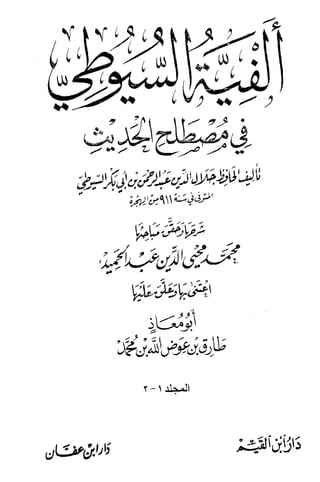 ألفية السيوطي
في مصطلح الحديث
تأليف الحافظ جلال الدين عبد الرحمن بن أبي بكر السيوطي
المتوفى في سنة ٩١١ من الهجرة
شرحها وحقق مباحثها
محمد محيي الدين عبد الحميد
اعتنى بها وعلق عليها
أبو معاذ
طارق بن عوض الله بن محمد
المجلد ١-٢
دار ابن القيم
دار ابن عفان